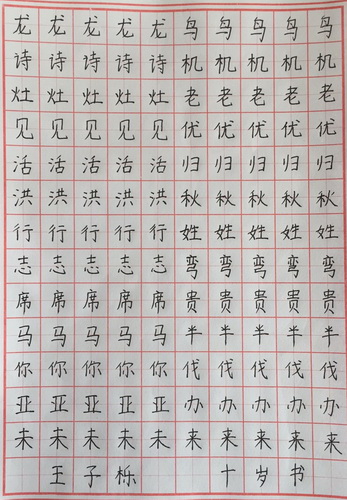 龙龙龙龙龙鸟鸟鸟鸟鸟
诗诗诗诗诗机机机机机
灶灶灶灶灶老老老老老
见见见见见优优优优优
活活活活活归归归归归
洪洪洪洪洪秋秋秋秋秋
行行行行行姓姓姓姓姓
志志志志志弯弯弯弯弯
席席席席席贵贵贵贵贵
马马马马马半半半半半
你你你你你伐伐伐伐伐
亚亚亚亚亚办办办办办
未未未未未来来来来来
王子栎 十岁书